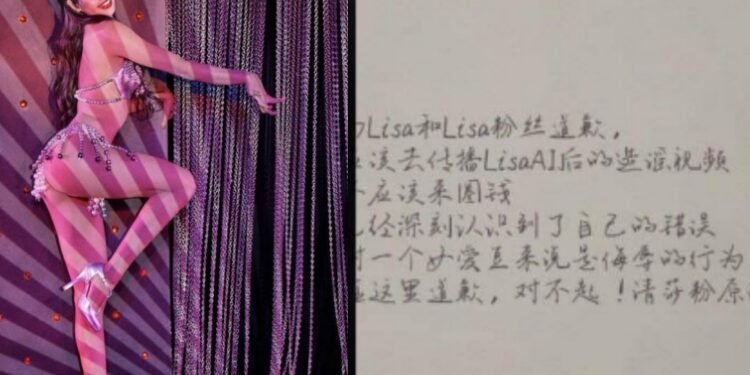 Lisa和Lisa粉丝道歉,
该去传播LisaAI后的造谣视频
应该来圈钱
经深刻认识到了自己的错误
一个女爱豆来说是侮辱的行为
这里道歉,对不起!请莎粉原